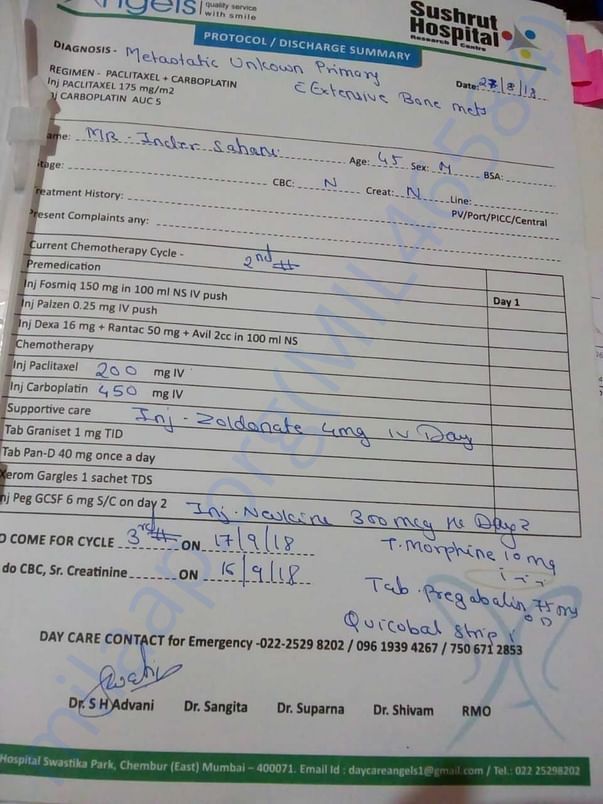 ngels quality service
with smile
Sushrut
Hospital
Research Centre
PROTOCOL / DISCHARGE SUMMARY
DIAGNOSIS - Metastatic Unkown Primary
c̄ Extensive Bone mets
Date: 27/8/18
REGIMEN - PACLITAXEL + CARBOPLATIN
Inj PACLITAXEL 175 mg/m2
j CARBOPLATIN AUC 5
ame: MR. Inder Sahani Age: 45 Sex: M BSA:
tage: CBC: N Creat: N Line:
PV/Port/PICC/Central
reatment History:
resent Complaints any:
Current Chemotherapy Cycle - 2nd #
Premedication Day 1
Inj Fosmiq 150 mg in 100 ml NS IV push
Inj Palzen 0.25 mg IV push
Inj Dexa 16 mg + Rantac 50 mg + Avil 2cc in 100 ml NS
Chemotherapy
Inj Paclitaxel 200 mg IV
Inj Carboplatin 450 mg IV
Supportive care Inj - Zoldonate 4mg IV Day
Tab Graniset 1 mg TID
Tab Pan-D 40 mg once a day
Xerom Gargles 1 sachet TDS
nj Peg GCSF 6 mg S/C on day 2 Inj. Neukine 300mcg Day 2
O COME FOR CYCLE 3rd # ON 17/9/18
T. Morphine 10mg
do CBC, Sr. Creatinine ON 16/9/18
Tab. Pregabalin 75mg
OD
Quicobal Strip 1
DAY CARE CONTACT for Emergency -022-2529 8202 / 096 1939 4267 / 750 671 2853
Dr. S H Advani Dr. Sangita Dr. Suparna Dr. Shivam RMO
Hospital Swastika Park, Chembur (East) Mumbai – 400071. Email Id : daycareangels1@gmail.com / Tel.: 022 25298202